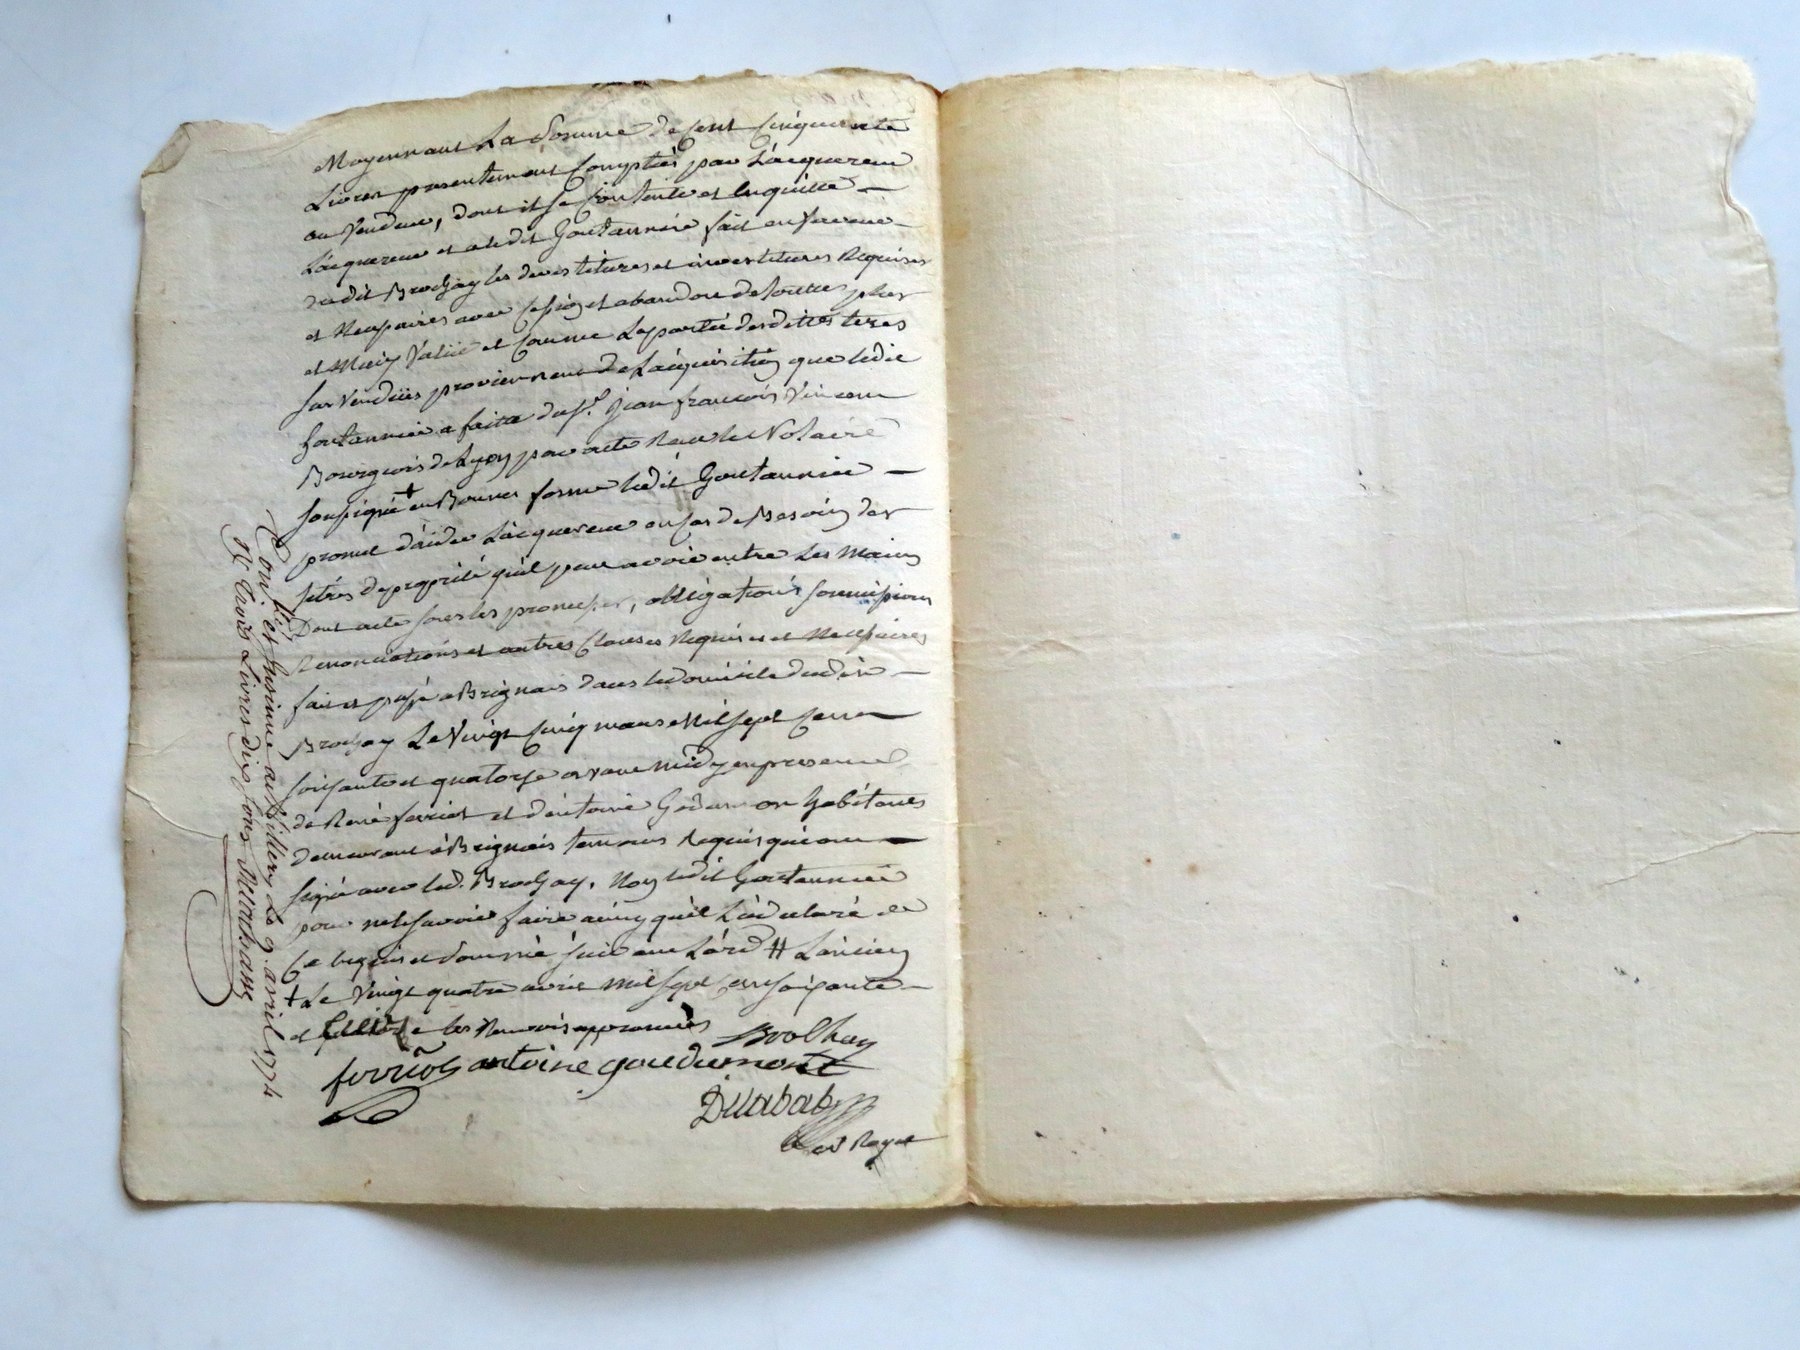 Moyennant La Somme de Cent Cinquante
Livres presentement Comptés par Lacquereur
au Vendeur, dont il se Contente et en quitte
Lacquereur et a ledit Goutannier fait en faveur
dudit Brochay les devestitures et investitures Requises
et Necessaires avec Cession et abandon de Toutes plus
et Moins Value et Comme La partie desdittes terres
sus Vendües proviennent de Lacquisition que ledit
Goutannier a faitte du Sr. Jean francois Vincent
Bourgeois de Lyon par acte Recu le Notaire
soussigné + en Bonne forme ledit Goutannier
promet d'aider Lacquereur en Cas de Besoin des
titres de proprieté quil peut avoir entre Les Mains
Dont acte sous les promesses, obligations soumissions
Renonciations et autres Clauses Requises et Necessaires
fait et passé a Brignais dans le domicile dudit
Brochay Le Vingt Cinq mars Mil sept Cent
soixante et quatorze avant midy en presence
de René ferriol et d'antoine Godumon habitants
demeurant à Brignais temoins Requis qui ont
signé avec led. Brochay, Non ledit Goutannier
pour ne le savoir faire ainsy quil La declaré de
Ce Requis et Sommé suivant L'ord
+ Le Vingt quatre avril mil sept Cent soixante
et les Renvois approuvés Brolhay
ferriol antoine goudumont
Dulabab
Nore Royal
Con.lé et Insinué au Le 7. avril 1774
Rç Trois Livres dix sous